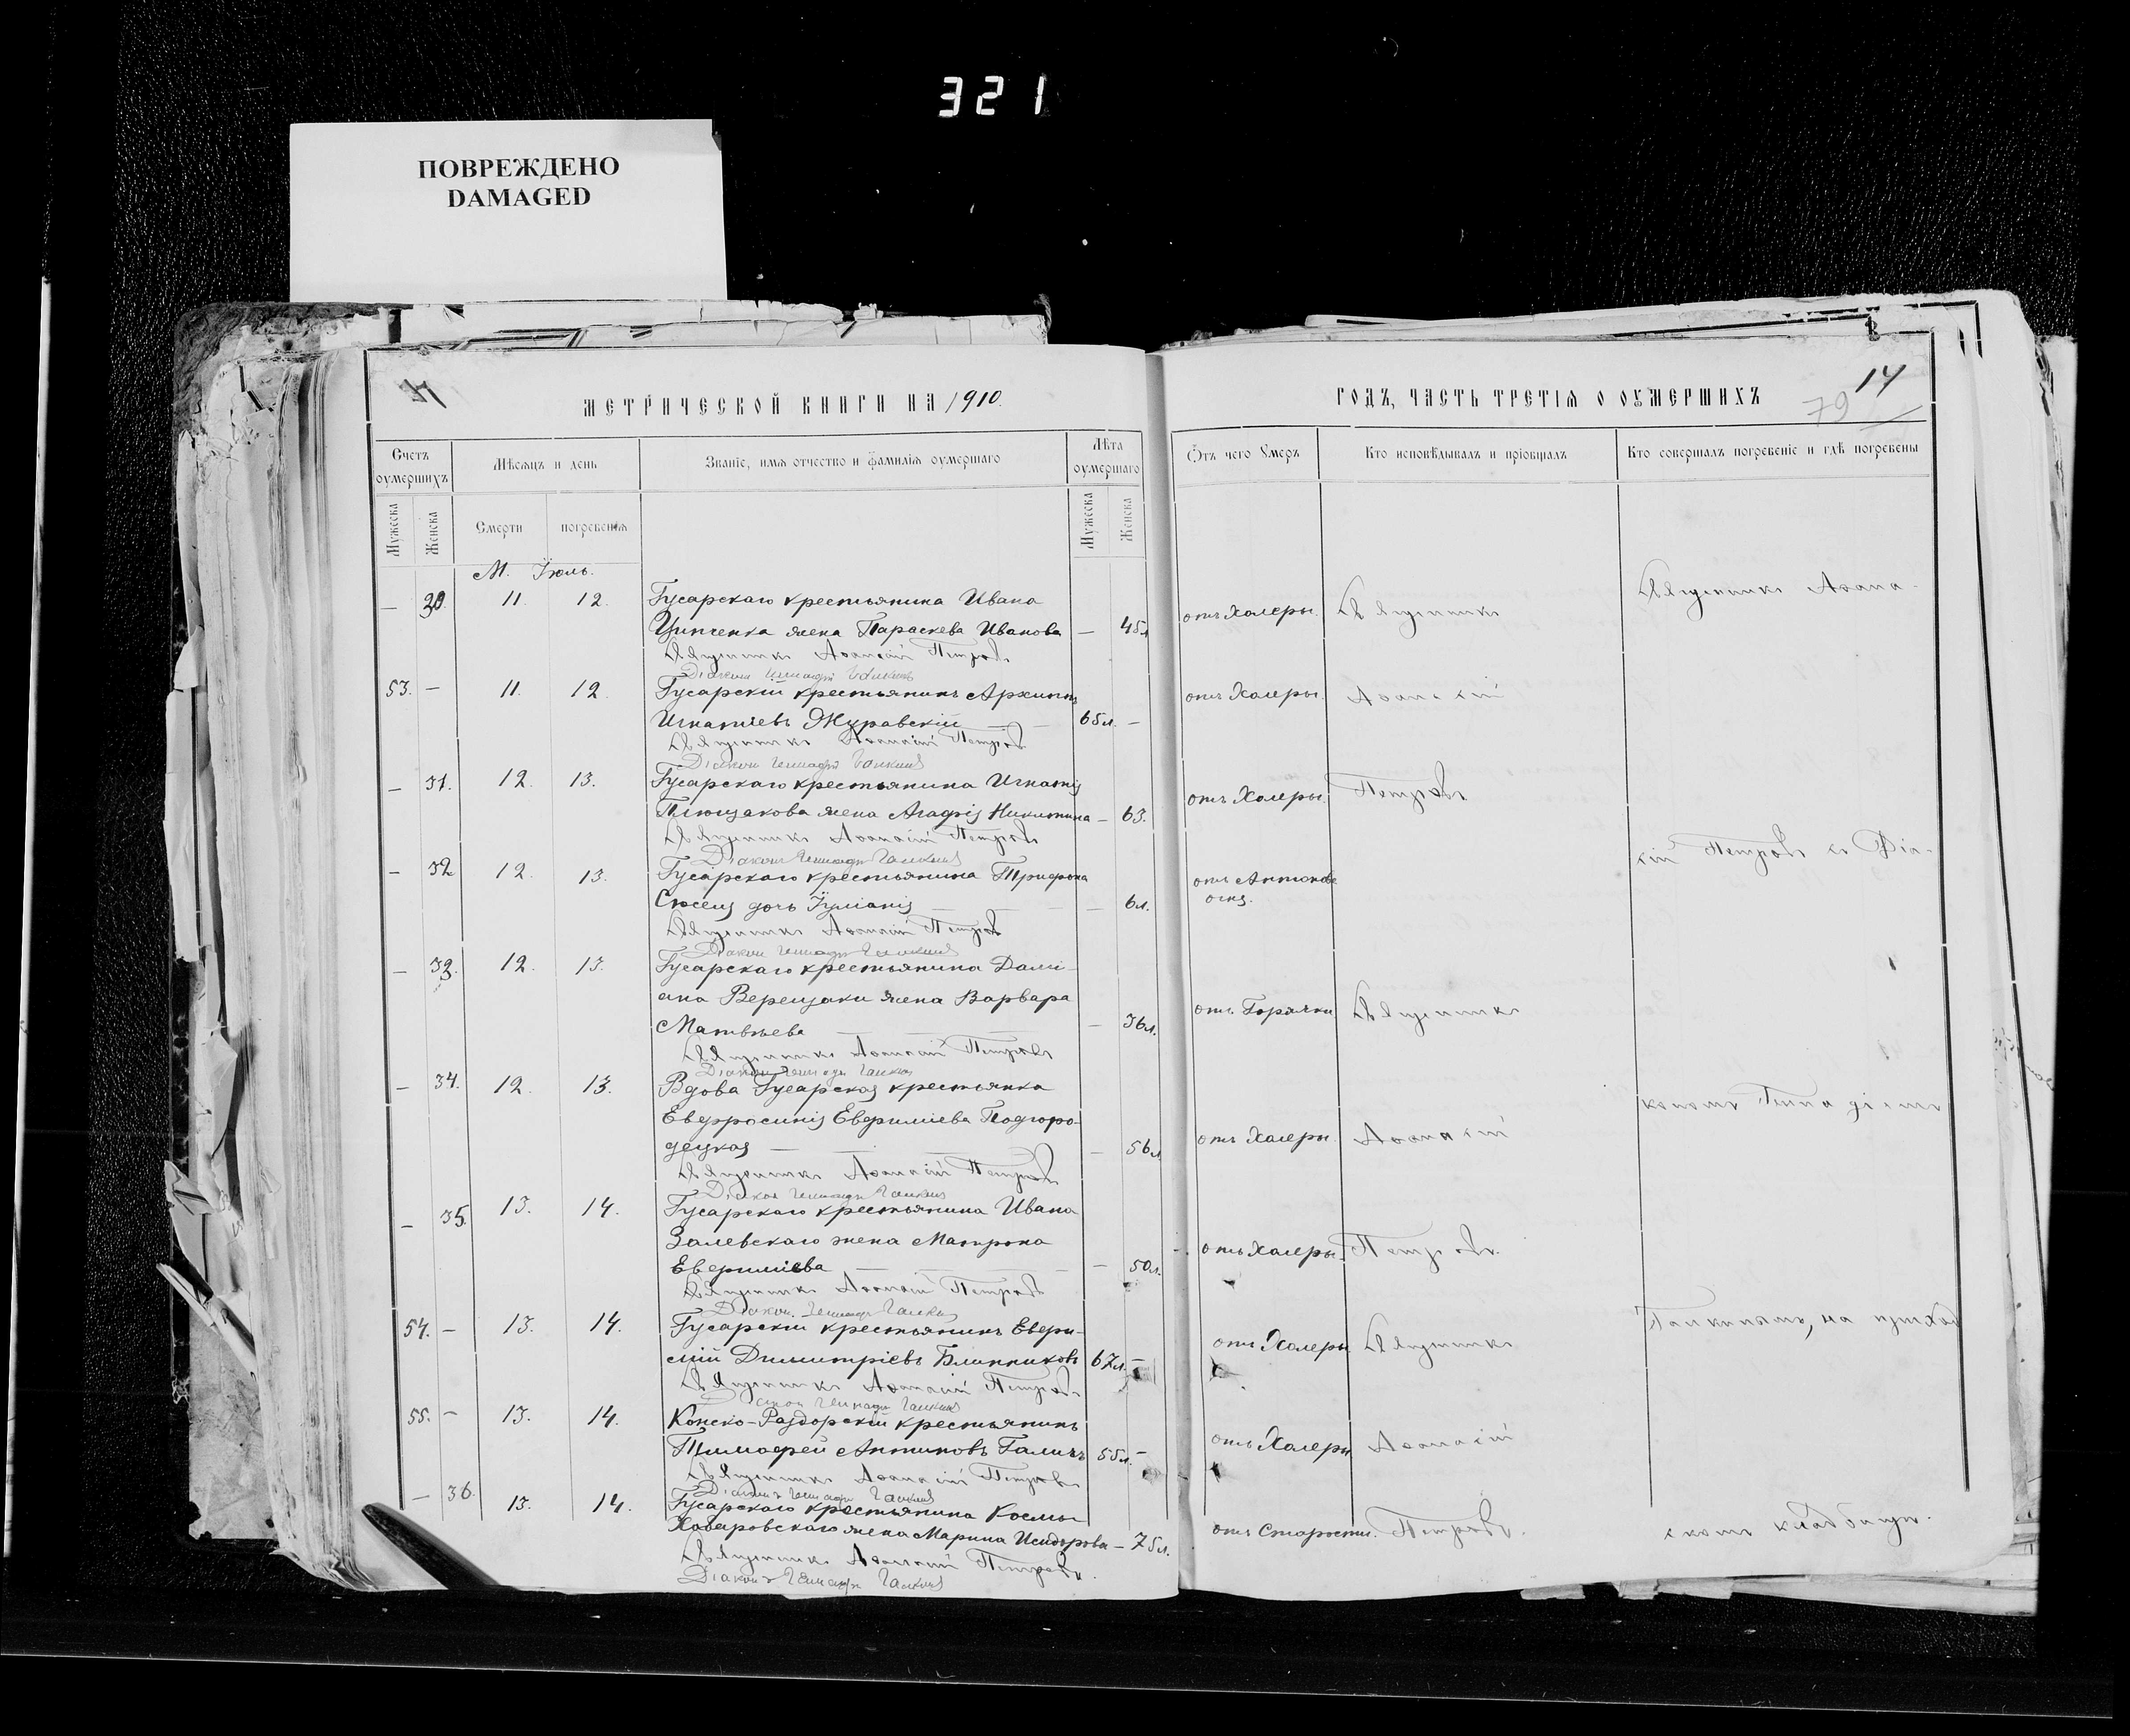 321
ПОВРЕЖДЕНО
DAMAGED
МЕТРИЧЕСКОЙ КНИГИ НА 1910
ГОДЪ, ЧАСТЬ ТРЕТІЯ О ОУМЕРШИХЪ
14
79
Счетъ оумершихъ
Мѣсяцъ и день
Званіе, имя отчество и фамилія оумершаго
Лѣта оумершаго
Отъ чего Умеръ
Кто исповѣдывалъ и пріобщалъ
Кто совершалъ погребеніе и гдѣ погребены
Мужеска
Женска
Смерти
погребенія
Мужеска
Женска
М. Іюль.
— 30. 11. 12. Гусарскаго крестьянина Ивана
Ципченка жена Параскева Иванова — 45л отъ Холеры. Священникъ Священникъ Аѳана-
Священникъ Аѳанасій Петровъ
Діаконъ Геннадій Галкинъ
53. — 11. 12. Гусарскій крестьянинъ Архиппъ
Игнатіевъ Журавскій 65л. — отъ Холеры. Аѳанасій
Священникъ Аѳанасій Петровъ
Діаконъ Геннадій Галкинъ
— 31. 12. 13. Гусарскаго крестьянина Игнатія
жена Агафія Никитина — 63. отъ Холеры. Петровъ
Священникъ Аѳанасій Петровъ
Діаконъ Геннадій Галкинъ
— 32 12. 13. Гусарскаго крестьянина Трифона
дочь Іуліанія — 6л. отъ Антонова огня. сій Петровъ съ Діа-
Священникъ Аѳанасій Петровъ
Діаконъ Геннадій Галкинъ
— 33. 12. 13. Гусарскаго крестьянина Домі-
ана Верещаки жена Варвара
Матвѣева — 36л. отъ Горячки Священникъ
Священникъ Аѳанасій Петровъ
Діаконъ Геннадій Галкинъ
— 34. 12. 13. Вдова Гусарская крестьянка
Евфросинія Евфиміева Подгоро-
децкая — 56л. отъ Холеры. Аѳанасій кономъ Геннадіемъ
Священникъ Аѳанасій Петровъ
Діаконъ Геннадій Галкинъ
— 35. 13. 14. Гусарскаго крестьянина Ивана
Залевскаго жена Матрона
Евфиміева — 50л. отъ Холеры. Петровъ.
Священникъ Аѳанасій Петровъ
Діаконъ Геннадій Галкинъ
54. — 13. 14. Гусарскій крестьянинъ Евфи-
мій Димитріевъ Блинниковъ 67л. — отъ Холеры Священникъ Галкинымъ, на приход
Священникъ Аѳанасій Петровъ
Діаконъ Геннадій Галкинъ
55. — 13. 14. Конско-Раздорскій крестьянинъ
Тимофей Антиповъ Галичъ 55л. — отъ Холеры Аѳанасій
Священникъ Аѳанасій Петровъ
Діаконъ Геннадій Галкинъ
— 36. 13. 14. Гусарскаго крестьянина Космы
Хаваровскаго жена Марина Исидорова — 75л. отъ Старости. Петровъ. скомъ кладбищѣ.
Священникъ Аѳанасій Петровъ.
Діаконъ Геннадій Галкинъ